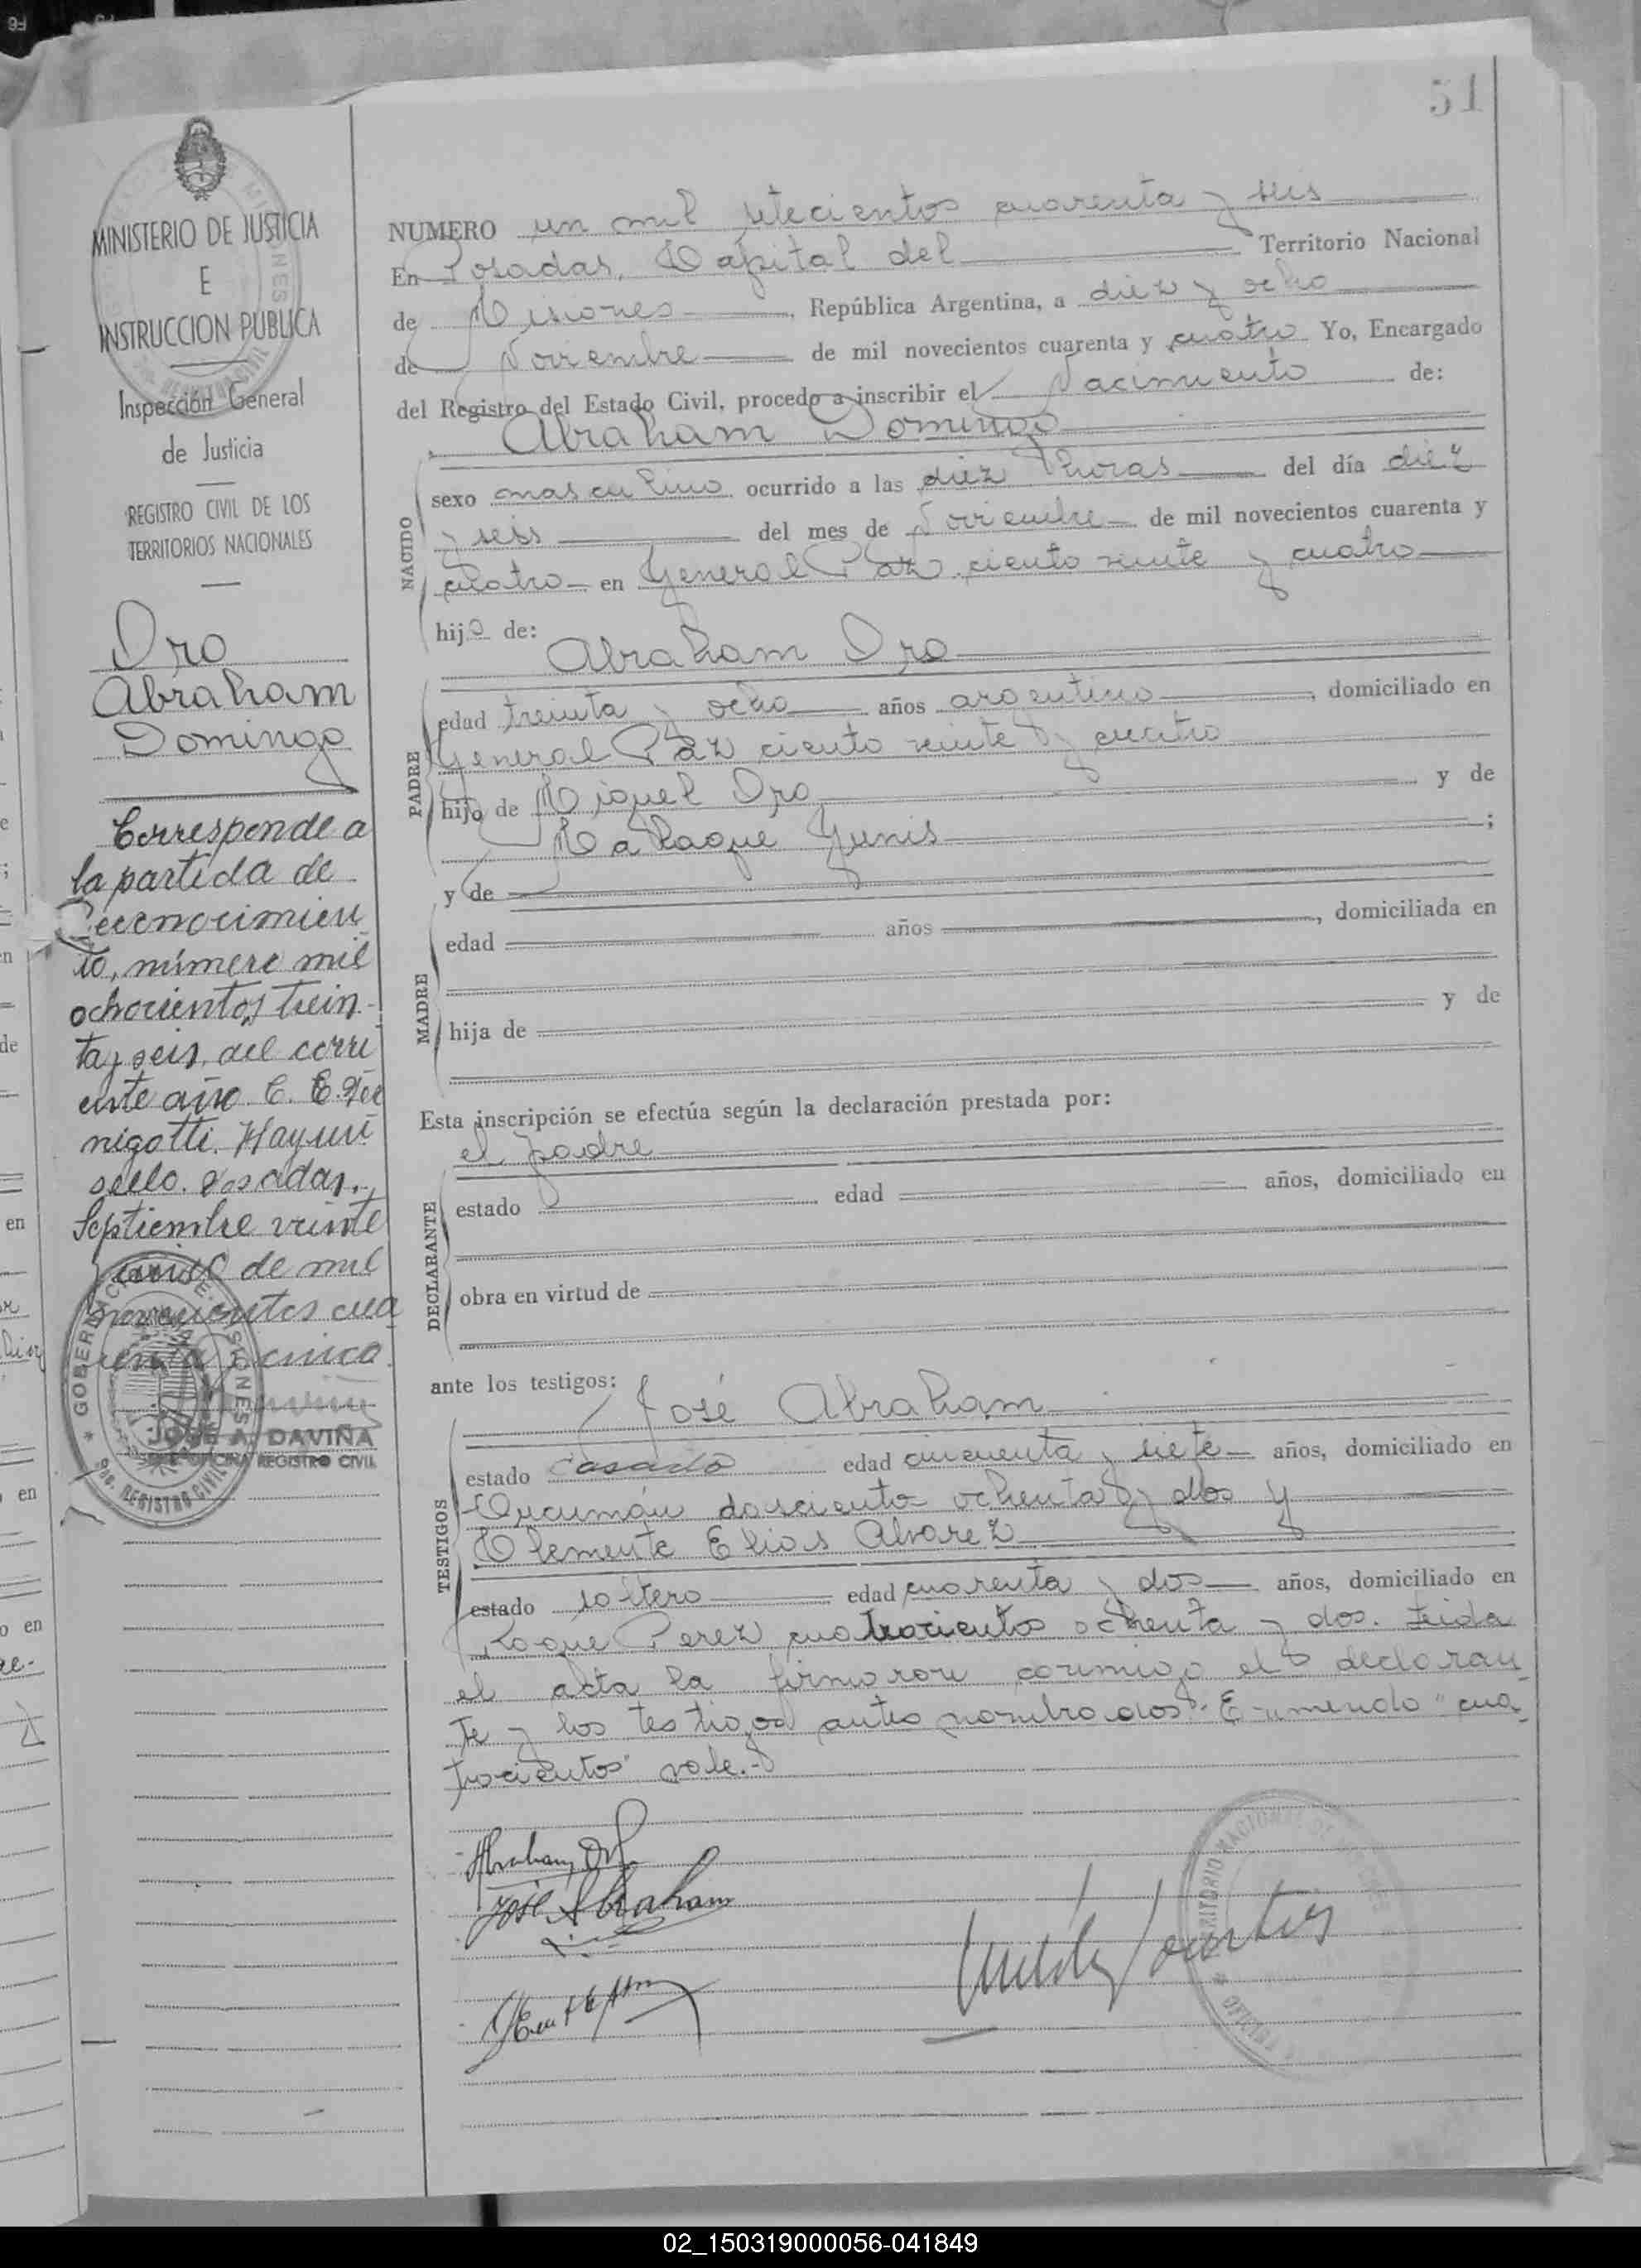 51
MINISTERIO DE JUSTICIA
E
INSTRUCCION PUBLICA
Inspección General
de Justicia
REGISTRO CIVIL DE LOS
TERRITORIOS NACIONALES
Oro
Abraham
Domingo
Corresponde a
la partida de
Reconocimien
to, número mil
ochocientos trein-
ta y seis, del corri
ente año. C. E.
nigotti. Hay un
sello. Posadas,
Septiembre veinte
de mil
novecientos cua
renta y cinco.
GOBERNACION DE MISIONES
REGISTRO CIVIL
JOSE A. DAVIÑA
JEFE OFICINA REGISTRO CIVIL
NUMERO un mil setecientos cuarenta y seis
En Posadas, Capital del Territorio Nacional
de Misiones, República Argentina, a diez y ocho
de Noviembre de mil novecientos cuarenta y cuatro Yo, Encargado
del Registro del Estado Civil, procedo a inscribir el Nacimiento de:
Abraham Domingo
NACIDO
sexo masculino ocurrido a las diez horas del día diez
y seis del mes de Noviembre de mil novecientos cuarenta y
cuatro en General Paz ciento veinte y cuatro
hijo de:
Abraham Oro
PADRE
edad treinta y ocho años argentino, domiciliado en
General Paz ciento veinte y cuatro
hijo de Miguel Oro y de
Malaque Yunis;
y de
MADRE
edad años, domiciliada en
hija de y de
Esta inscripción se efectúa según la declaración prestada por:
el padre
DECLARANTE
estado edad años, domiciliado en
obra en virtud de
ante los testigos:
José Abraham
TESTIGOS
estado casado edad cincuenta y siete años, domiciliado en
Tucumán doscientos ochenta y dos y
Clemente Elias Alvarez
estado soltero edad cuarenta y dos años, domiciliado en
Roque Perez cuatrocientos ochenta y dos. Leida
el acta la firmaron conmigo el declaran
te y los testigos antes nombrados.- Enmendo "cua
trocientos" vale.-
Abraham Oro
José Abraham
02_150319000056-041849